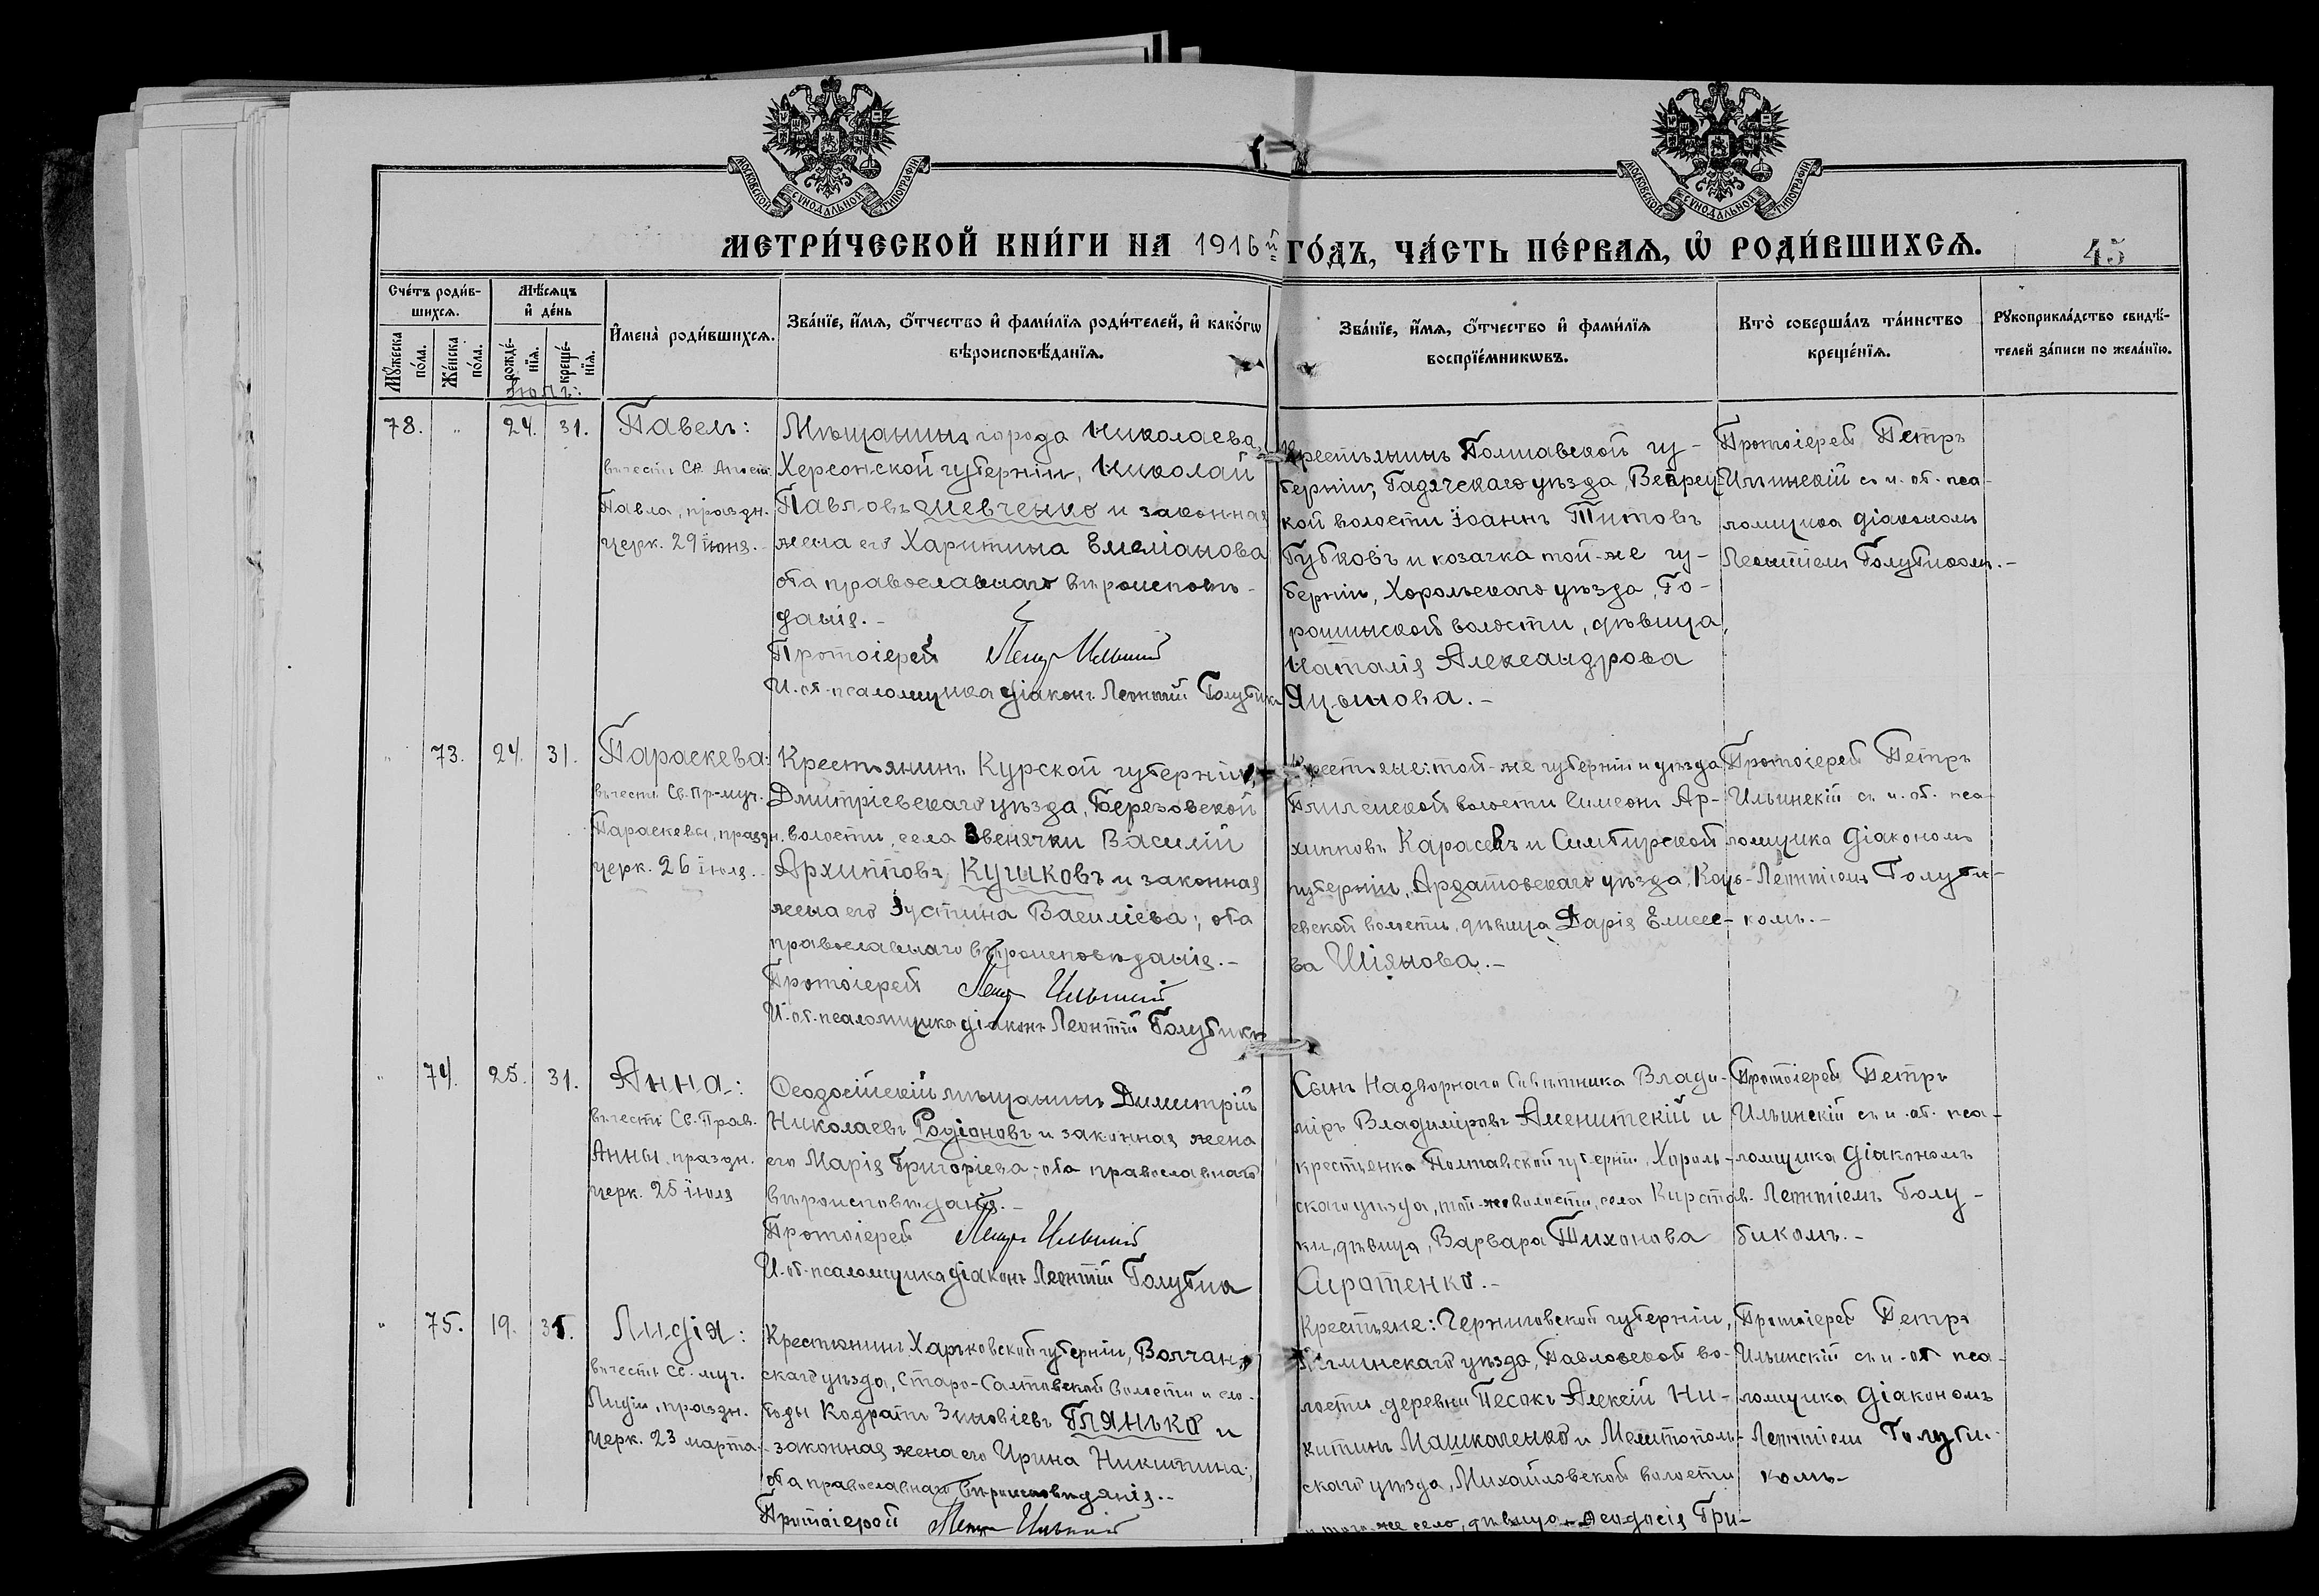 МОСКОВСКОЙ СѴНОДАЛЬНОЙ ТИПОГРАФІИ
МОСКОВСКОЙ СѴНОДАЛЬНОЙ ТИПОГРАФІИ
МЕТРИ́ЧЕСКОЙ КНИ́ГИ НА 1916й ГО́ДЪ, ЧА́СТЬ ПЕ́РВАѦ, Ѽ РОДИ́ВШИХСѦ.
45
Сче́тъ роди́в-
шихсѧ.
Мꙋ́жеска по́ла.
Же́нска по́ла.
Мѣ́сѧцъ
и҆ де́нь
рожде́-
нїѧ.
креще́-
нїѧ.
Іюль:
И҆мена̀ роди́вшихсѧ.
Зва́нїе, и҆́мѧ, ѻ҆́тчество и҆ фами́лїѧ роди́телей, и҆ како́гѡ
вѣроисповѣ́данїѧ.
Зва́нїе, и҆́мѧ, ѻ҆́тчество и҆ фами́лїѧ
воспрїе́мникѡвъ.
Кто̀ соверша́лъ та́инство
креще́нїѧ.
Рꙋкоприкла́дство свидѣ́-
телей за́писи по жела́нїю.
78. " 24. 31.
Павелъ:
въ честь Св. Апост.
Павла, праздн.
церк. 29 іюня.-
Мѣщанинъ города Николаева,
Херсонской губерніи, Николай
Павловъ Шевченко и законная
жена его Харитина Емеліанова
оба православнаго вѣроисповѣ-
данія.-
Протоіерей Петръ Ильинскій
И. об. псаломщика діаконъ Леонтій Голубикъ
Крестьянинъ Полтавской гу-
берніи, Гадячскаго уѣзда, Веприц-
кой волости Іоаннъ Титовъ
Губковъ и козачка той-же гу-
берніи, Хорольскаго уѣзда, Го-
рошинской волости, дѣвица,
Наталія Александрова
Яцынова.-
Протоіерей Петръ
Ильинскій съ и. об. пса-
ломщика діакономъ
Леонтіемъ Голубикомъ.-
" 73. 24. 31.
Параскева:
въ честь Св. Пр-муч.
Параскевы, праздн.
церк. 26 іюля.-
Крестьянинъ Курской губерніи,
Дмитріевскаго уѣзда, Березовской
волости, села Звенячки Василій
Архипповъ Кушковъ и законная
жена его Іустина Василіева; оба
православнаго вѣроисповѣданія.-
Протоіерей Петръ Ильинскій
И. об. псаломщика діаконъ Леонтій Голубикъ
Крестьяне: той-же губерніи и уѣзда
волости Симеонъ Ар-
хипповъ Карасевъ и Симбирской
губерніи, Ардатовскаго уѣзда,
евской волости, дѣвица Дарія Елисее-
ва Шіянова.-
Протоіерей Петръ
Ильинскій съ и. об. пса-
ломщика діакономъ
Леонтіемъ Голуби-
комъ.-
" 74. 25. 31.
Анна:
въ честь Св. Прав.
Анны, праздн.
церк. 25 іюля
Ѳеодосійскій мѣщанинъ Димитрій
Николаевъ Родіоновъ и законная жена
его Марія Григоріева; оба православнаго
вѣроисповѣданія.-
Протоіерей Петръ Ильинскій
И. об. псаломщика діаконъ Леонтій Голубик
Сынъ Надворнаго Совѣтника Влади-
міръ Владиміровъ Аменитскій и
крестьянка Полтавской губерніи, Хороль-
скаго уѣзда, той-же волости, села
ки, дѣвица, Варвара Тихонова
Сиротенко.-
Протоіерей Петръ
Ильинскій съ и. об. пса-
ломщика діакономъ
Леонтіемъ Голу-
бикомъ.-
" 75. 19. 31.
Лидія:
въ честь Св. муч.
Лидіи, праздн.
церк. 23 марта.-
Крестьянинъ Харьковской губерніи, Волчан-
скаго уѣзда, Старо-Салтовской волости и сло-
боды Кодратъ Зиновіевъ Глянько и
законная жена его Ирина Никитина;
оба православнаго вѣроисповѣданія.-
Протоіерей Петръ Ильинскій
Крестьяне: Черниговской губерніи,
уѣзда, Павловской во-
лости, деревни Песокъ Алексій Ни-
китинъ Машколенко и Мелитополь-
скаго уѣзда, Михайловской волости
и того-же село, дѣвица Ѳеодосія Гри-
Протоіерей Петръ
Ильинскій съ и. об. пса-
ломщика діакономъ
Леонтіемъ Голуби-
комъ-